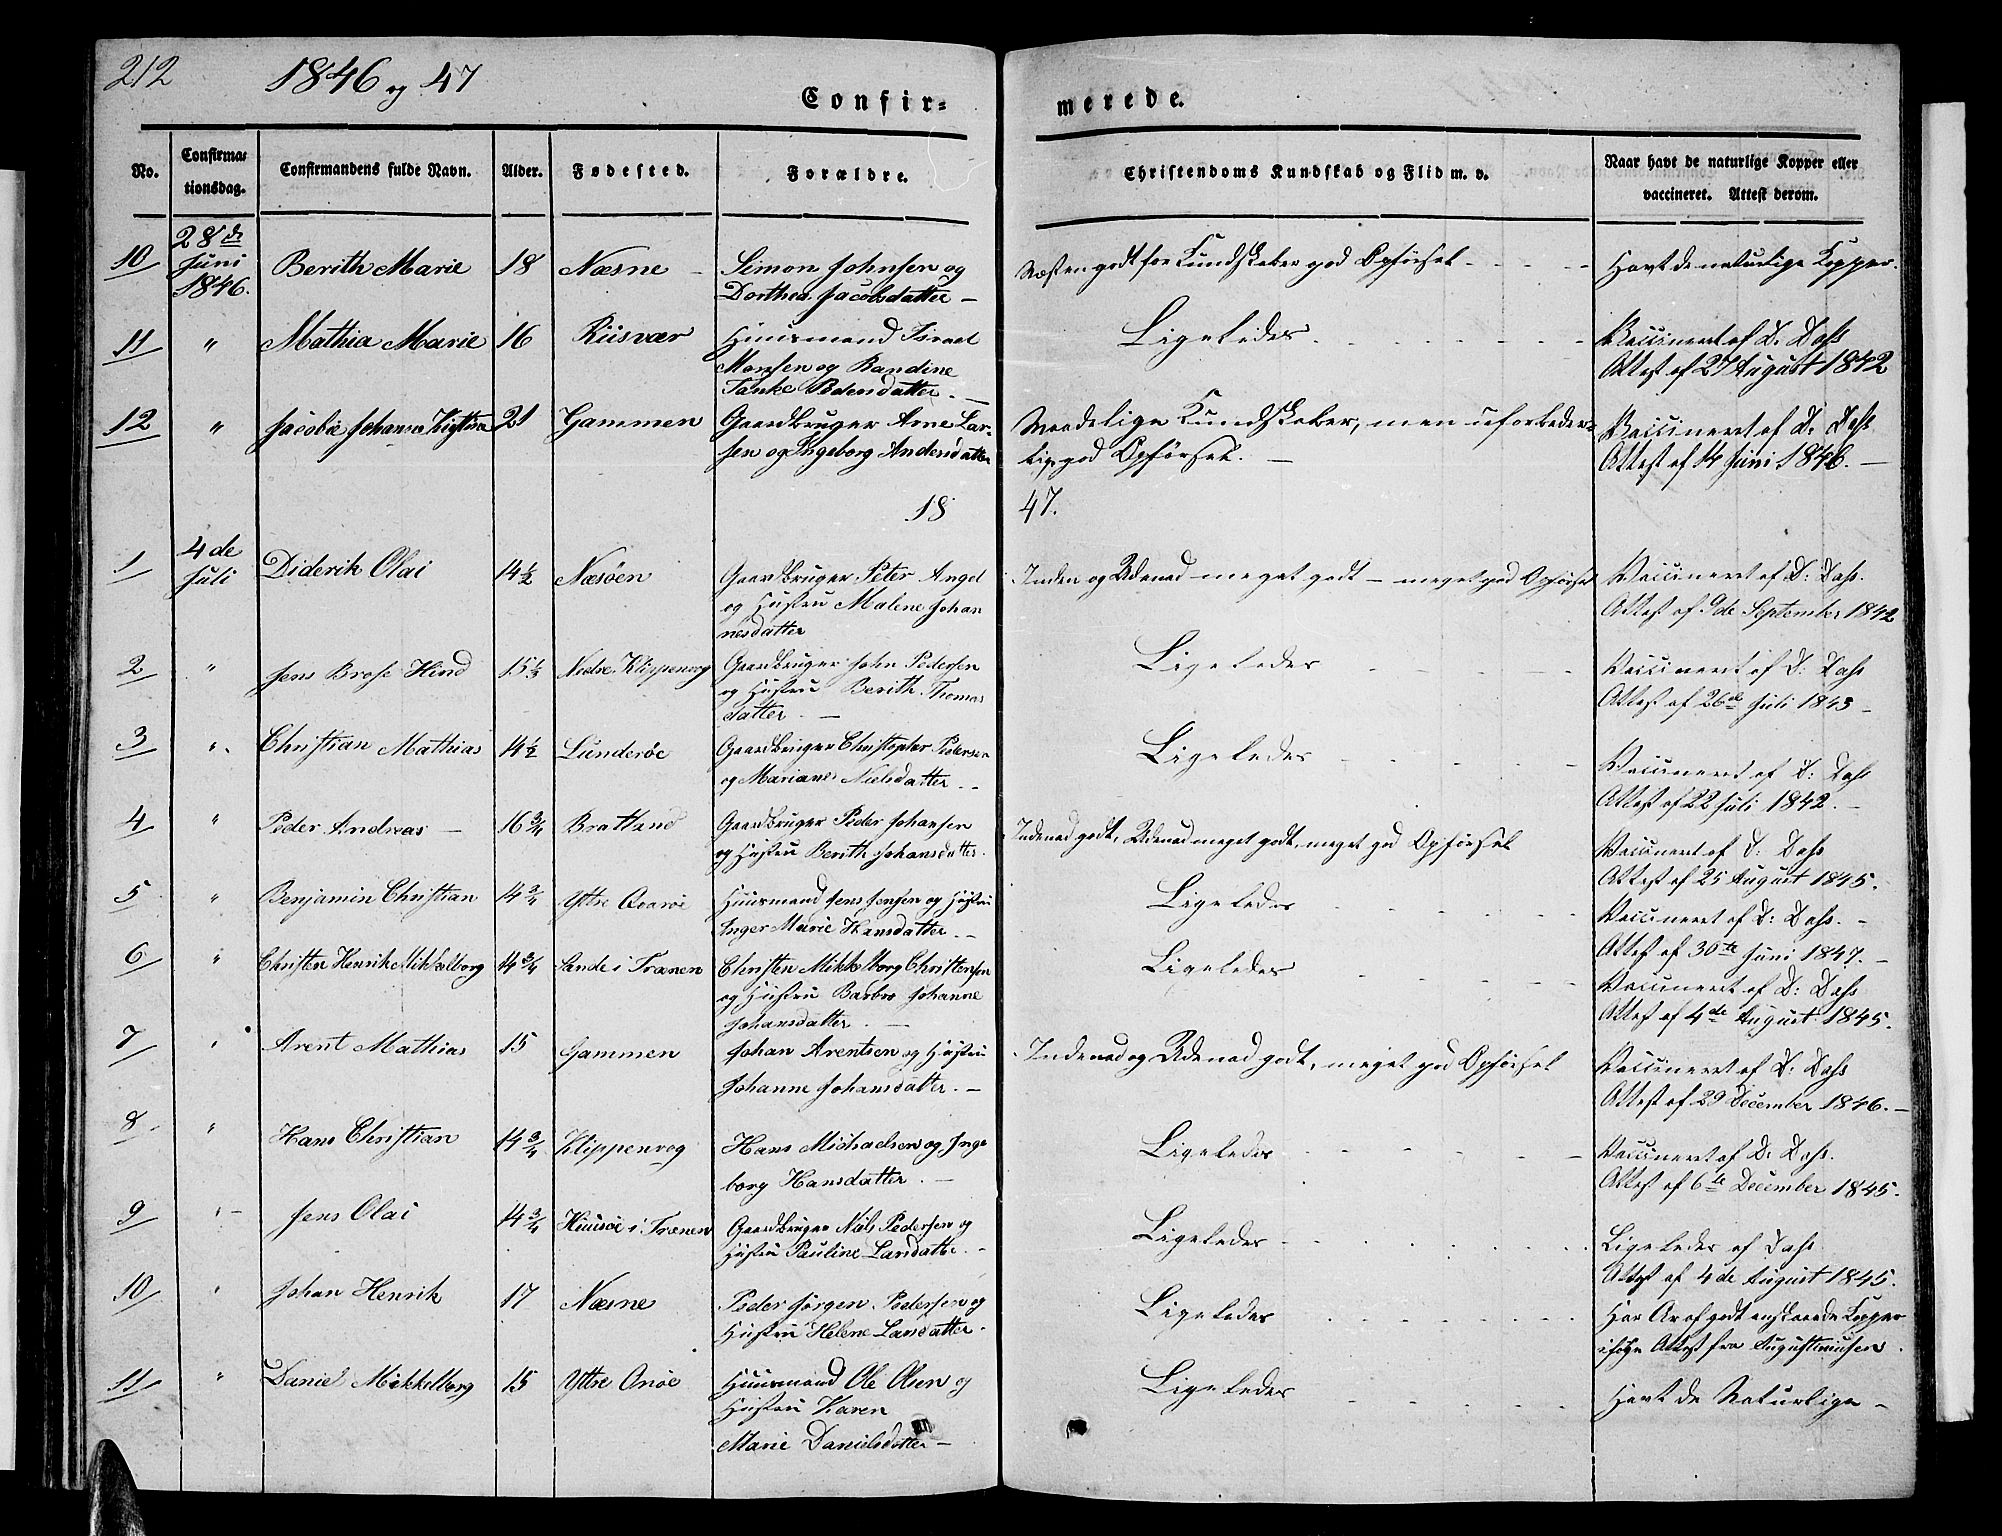 212
1846 og 47
Confir-
merede.
No.
Confirma-
tionsdag.
Confirmandens fulde Navn.
Alder.
Fødested.
Forældre.
Christendoms Kundskab og Flid m. v.
Naar havt de naturlige Kopper eller
vaccineret. Attest derom.
10 28de Juni 1846. Berith Marie 18 Næsne - Simon Johnsen og
Dorthea Jacobsdatter -
Næsten godt for Kundskaber god Opførsel - - -
Havt de naturlige Kopper.
11 " Mathia Marie 16 Riisvær Huusmand Israel
Monsen og Randine
Tanke Pedersdatter. -
Ligeledes - - -
Vaccineret af D. Dahs
Attest af 27 August 1842
12 " Jacobie Johanna 21 Gammen Gaardbruger Arne Lar-
sen og Ingeborg Andersdatter
Maadelige Kundskaber, men uforbeder-
lig god Opførsel. -
Vaccineret af D. Dahs
Attest af 14 Juni 1846. -
18
47.
1 4de Juli Diderik Olai 14½ Næsøen Gaardbruger Peter Angel
og Hustru Malene Johan
nesdatter
Inden og Udenad meget godt - meget god Opførsel
Vaccineret af D: Dahs.
Attest af 9de September 1842
2 " Jens Brose Hind 15½ Nedre Klippenvog Gaardbruger John Pedersen
og Hustru Berith Thomas
datter. -
Ligeledes - - -
Vaccineret af D: Dahs
Attest af 26de Juli 1843 -
3 " Christian Mathias 14½ Lunderøe Gaardbruger Christopher Pedersen
og Mariane Nielsdatter. -
Ligeledes - - -
Vaccineret af D: Dahs
Attest af 22 Juli 1842. -
4 " Peder Andreas - 16¾ Bratland Gaardbruger Peder Johansen
og Hustru Berith Johansdatter.
Indenad godt, Udenad meget godt, meget god Opførsel
Vaccineret af D: Dahs
Attest af 25 August 1845.
5 " Benjamin Christian 14¾ Yttre Huusmand Jens Jensen og Hustru
Inger Marie Hansdatter. -
Ligeledes - - -
Vaccineret af D: Dahs. -
Attest af 30te Juni 1847. -
6 " Christen Henrik Mikkelborg 14¾ Sande i Trænen Christen Mikkelborg Christensen
og Hustru Barbro Johanne
Johansdatter. -
Ligeledes - - -
Vaccineret af D: Dahs
Attest af 4de August 1845.
7 " Arent Mathias 15 Gammen Johan Arentsen og Hustru
Johanne Johansdatter. -
Indenad og Udenad godt, meget god Opførsel
Vaccineret af D: Dahs
Attest af 29 December 1846. -
8 " Hans Christian 14¾ Klippenvog Hans Michaelsen og Inge
borg Hansdatter. -
Ligeledes - - -
Vaccineret af D. Dahs.
Attest af 6te December 1845.
9 " Jens Olai 14¾ Huusøe i Trænen Gaardbruger Niels Pedersen og
Hustru Pauline Larsdatter. -
Ligeledes - - -
Ligeledes af Dahs
Attest af 4de August 1845.
10 " Johan Henrik 17 Næsne Peder Jørgen Pedersen og
Hustru Helene Larsdatter.
Ligeledes - - -
Har Ar af godt Kopper
ifølge Attest fra Augustinusen.
11 " Daniel Mikkelborg 15 Yttre Onøe Huusmand Ole Olsen og
Hustru Karen
Marie Danielsdatter -
Ligeledes - - -
Havt de Naturlige -